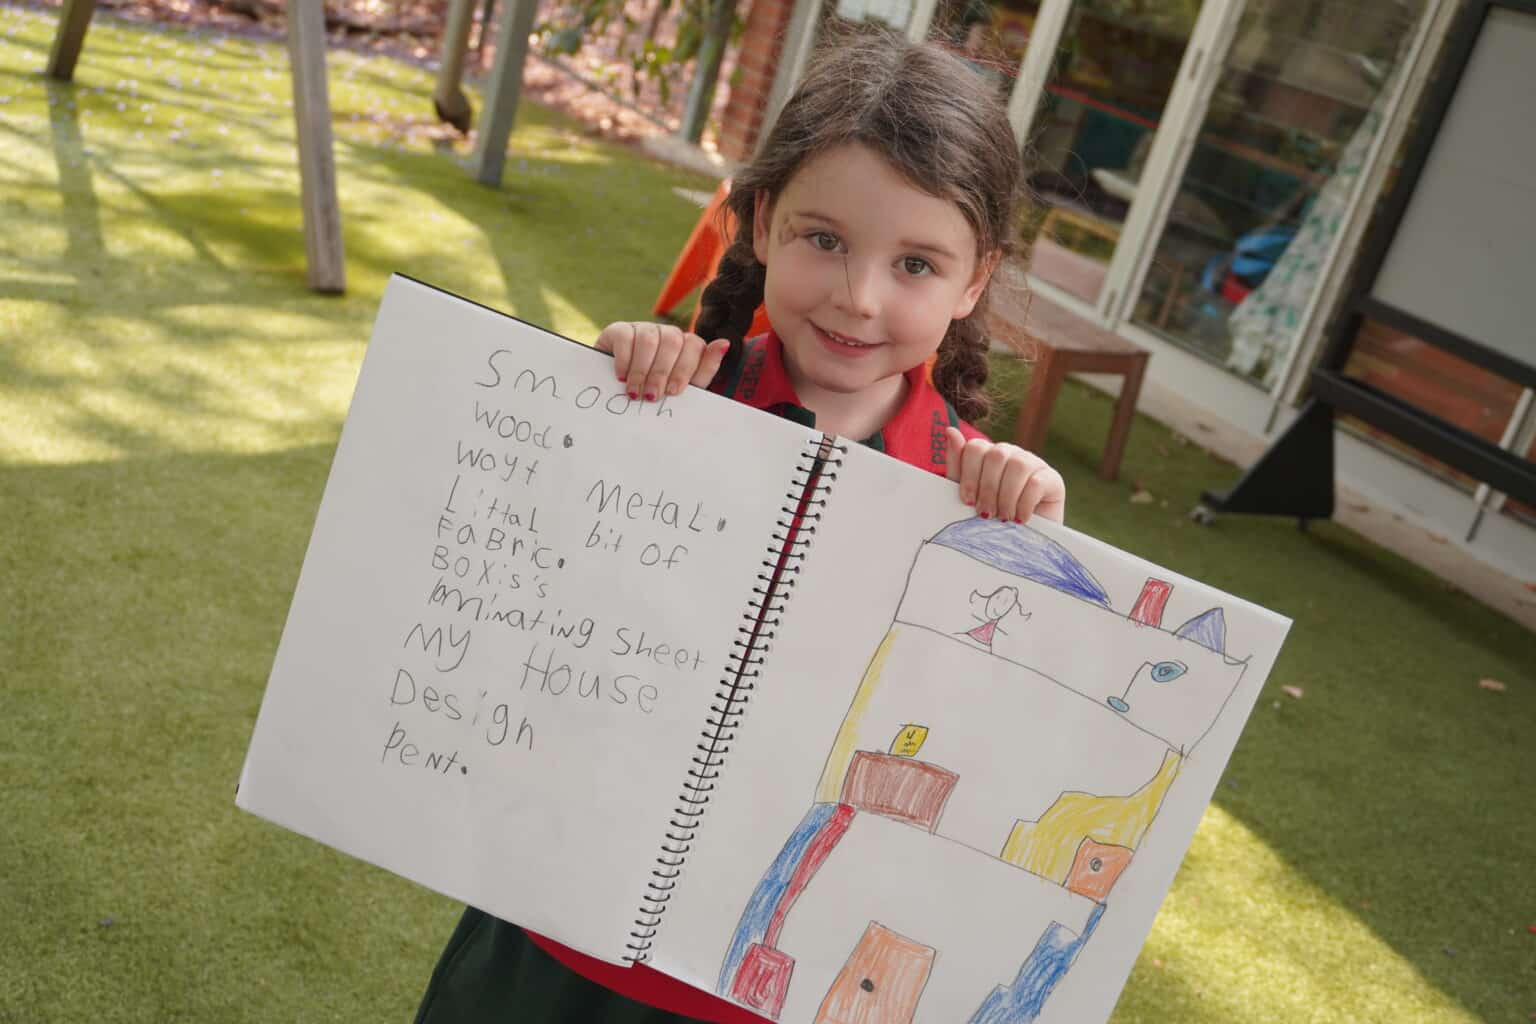 Smooth
wood.
woyt metal.
Littal bit of
FaBric.
BOXis's
laminating Sheet
My House
Design
Pent.
PREP
PREP